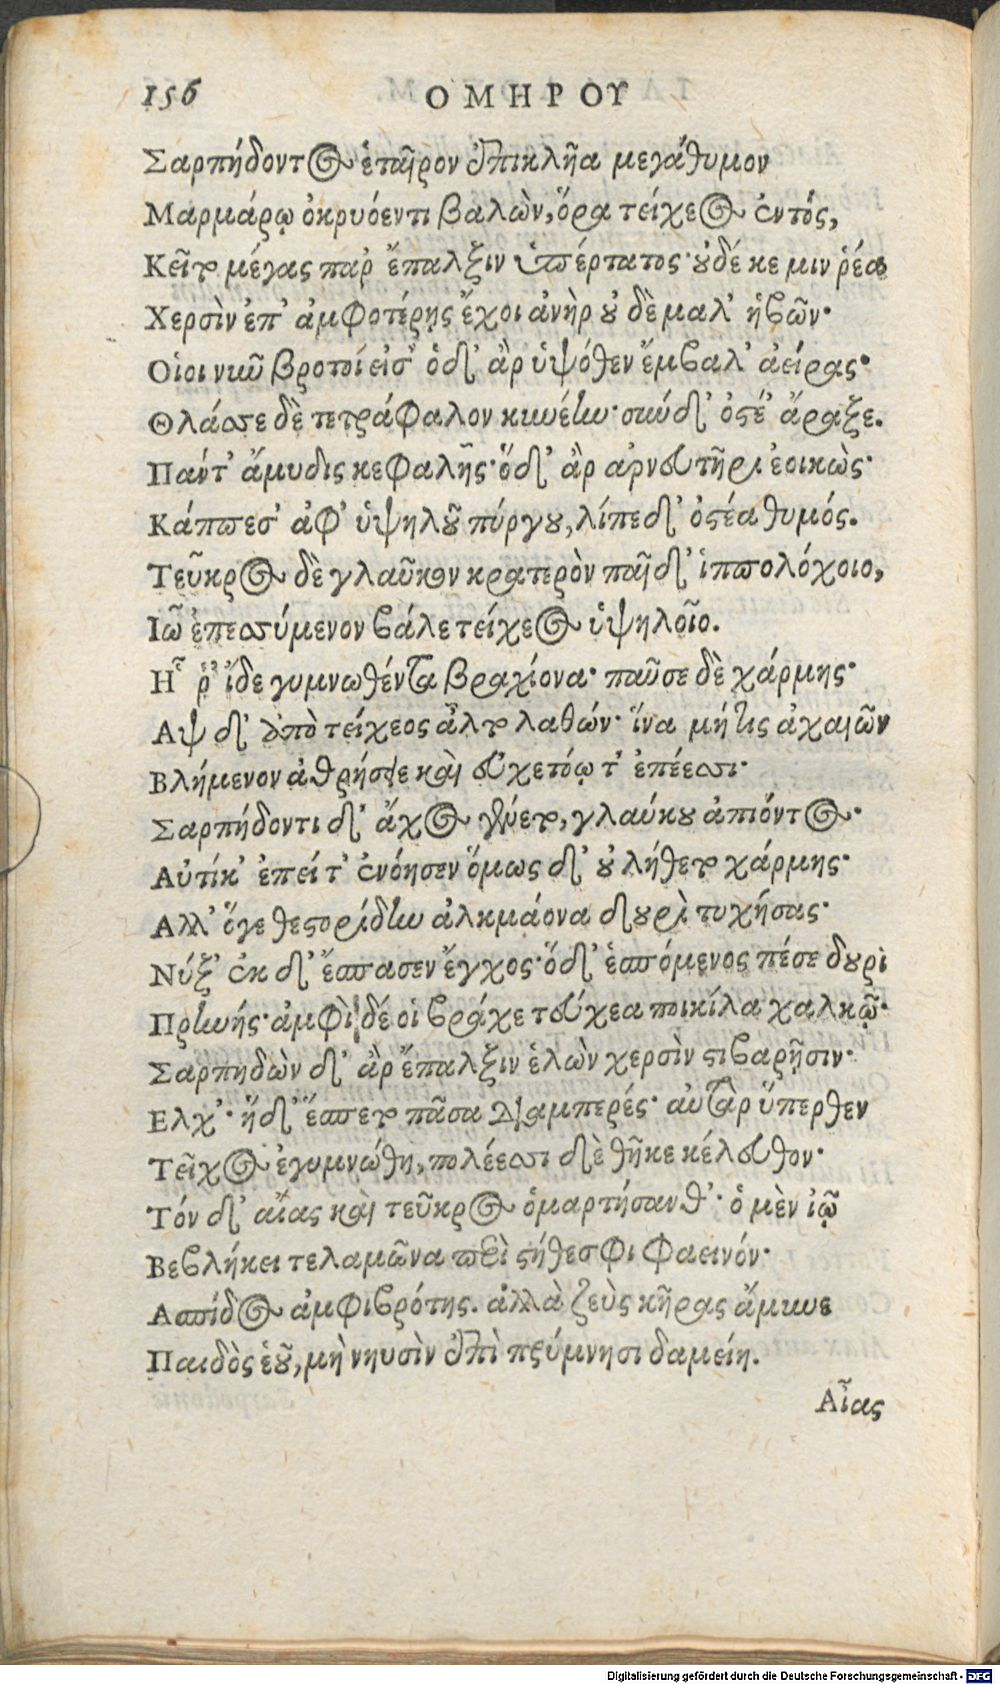 156 ΟΜΗΡΟΥ
Σαρπήδοντος ἑταῖρον ἐπικλῆα μεγάθυμον
Μαρμάρῳ ὀκρυόεντι βαλὼν, ὅρα τείχεος ἐντός,
Κεῖτο μέγας παρ' ἔπαλξιν ὑπέρτατος· οὐδέ κε μιν ῥέα
Χερσὶν ἐπ' ἀμφοτέρῃς ἔχοι ἀνὴρ οὐ δὲ μαλ' ἡβῶν·
Οἱοι νῦν βροτοί εἰσ' ὁ δ' ἂρ ὑψόθεν ἔμβαλ' ἀείρας·
Θλάσσε δὲ τετράφαλον κυνέην· σιώ δ' ὀστέ' ἄραξε.
Παντ' ἄμυδις κεφαλῆς· ὅδ' ἂρ ἀρνευτῆρι ἐοικὼς·
Κάππεσ' ἀφ' ὑψηλοῦ πύργου, λίπε δ' ὀστέα θυμός.
Τεῦκρος δὲ γλαῦκον κρατερὸν παῖδ' ἱππολόχοιο,
Ιῶ ἐπεσσύμενον βάλε τείχεος ὑψηλοῖο.
Ηῗ ῥ' ἴδε γυμνωθέντα βραχίονα· παῦσε δὲ χάρμης·
Αψ δ' ἀπὸ τείχεος ἆλτο λαθών· ἵνα μή τις ἀχαιῶν
Βλήμενον ἀθρήσειε καὶ εὐχετόῳτ' ἐπέεσσι·
Σαρπήδοντι δ' ἄχος γένετο, γλαύκου ἀπιόντος·
Αὐτίκ' ἐπεί τ' ἐνόησεν ὅμως δ' οὐ λήθετο χάρμης·
Αλλ' ὅγε θεστορίδην ἀλκμάονα δουρὶ τυχήσας·
Νύξ' ἐκ δ' ἔσπασεν ἔγχος· ὅδ' ἑσπόμενος πέσε δουρὶ
Πρηνής· ἀμφὶ δέ οἱ βράχε τεύχεα ποικίλα χαλκῷ·
Σαρπηδὼν δ' ἂρ ἔπαλξιν ἑλὼν χερσὶν στιβαρῇσιν·
Ελχ'· ἥδ' ἕσπετο πᾶσα διαμπερές· αὐτὰρ ὕπερθεν
Τεῖχος ἐγυμνώθη, πολέεσσι δὲ θῆκε κέλευθον·
Τόν δ' αἴας καὶ τεῦκρος ὁμαρτήσανθ'· ὁ μὲν ἰῷ
Βεβλήκει τελαμῶνα περὶ στήθεσφι φαεινόν·
Ασπίδος ἀμφιβρότης. ἀλλὰ ζεὺς κῆρας ἄμυνε
Παιδὸς ἑοῦ, μὴ νηυσὶν ἐπὶ πρύμνησι δαμείη.
Αἴας
Digitalisierung gefördert durch die Deutsche Forschungsgemeinschaft - DFG